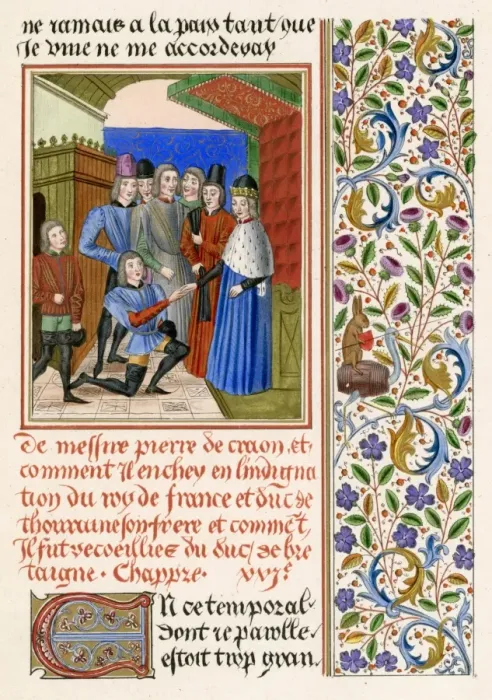 ne iamais a la paix tant que
Je vive ne me accorderay
De messire pierre de craon, et
comment Il enchey en lindigna
tion du roy de france et duc de
thourraine son frere et commēt,
Il fut recoeillies du duc de bre
taigne . Chappre . xxjᵉ
En ce temporal
dont ie parolle
estoit trop gran